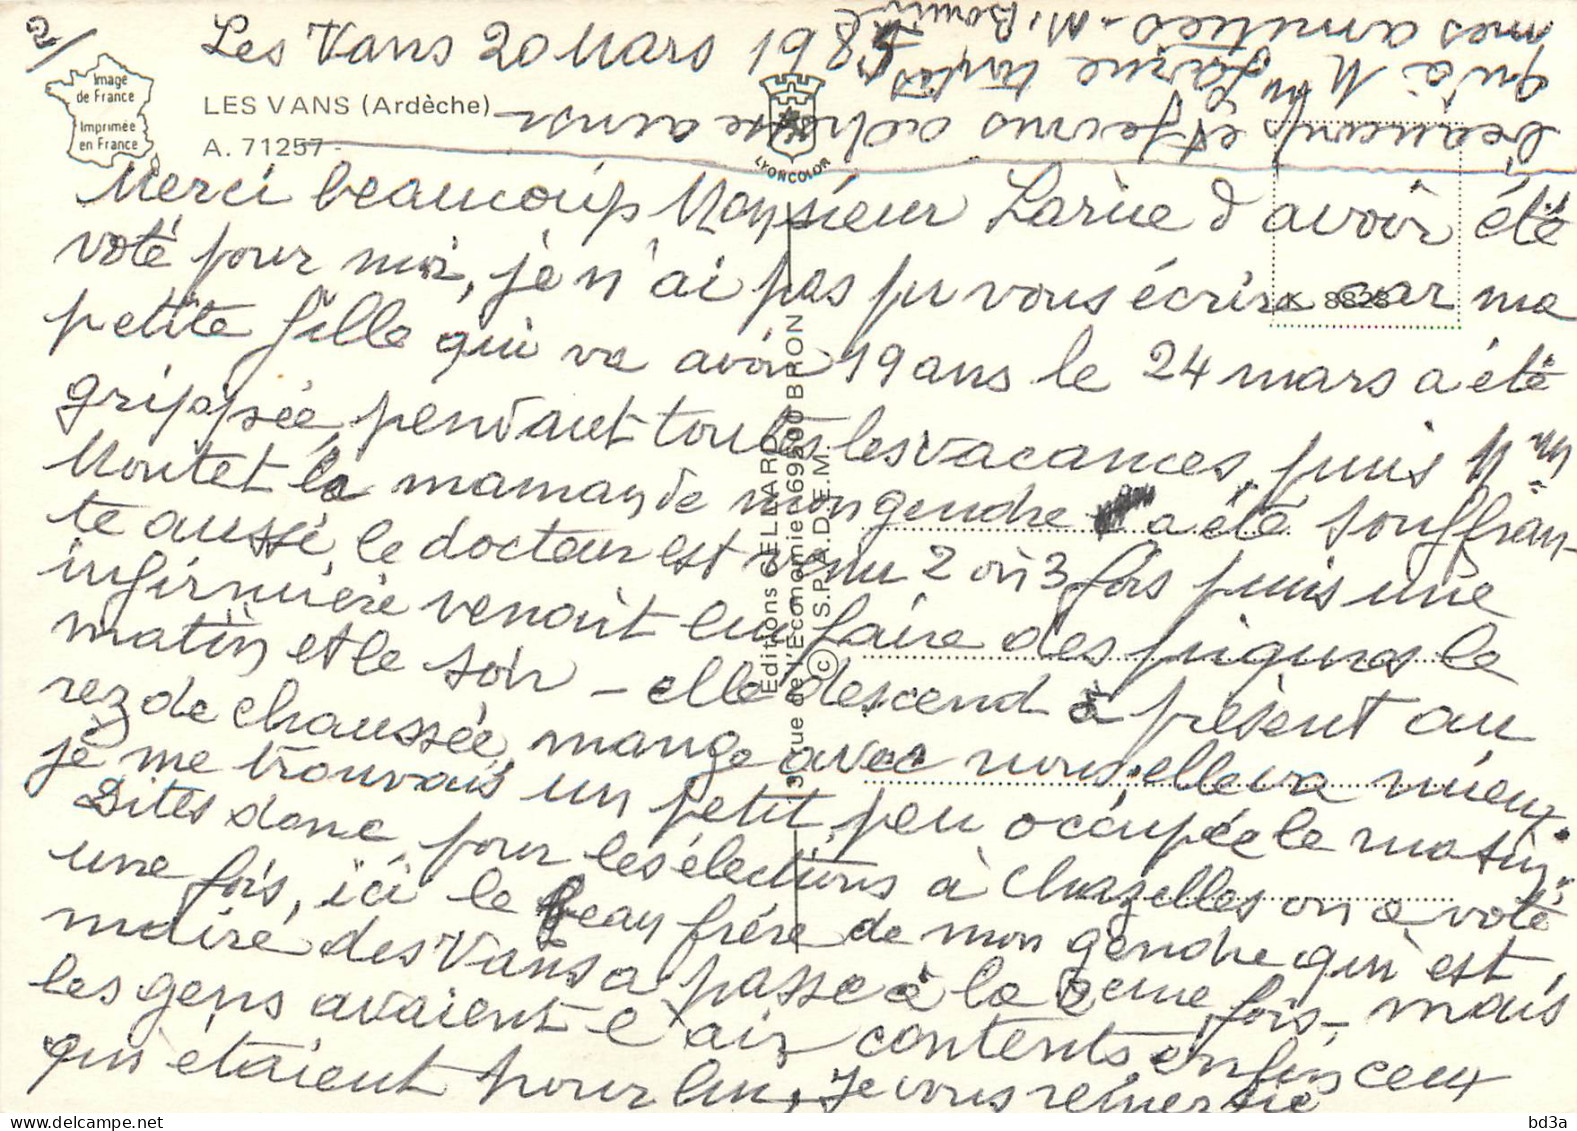 2/
Les Vans 20 Mars 1985
Image
de France
Imprimée
en France
LES VANS (Ardèche)
A. 71257
LYONCOLOR
K 8828
Merci beaucoup Monsieur Larüe d'avoir été
voté pour moi, je n'ai pas pu vous écrire car ma
petite fille qui va avoir 19 ans le 24 mars a été
grippée pendant toutes les vacances, puis Mme
Moutet la maman de mon gendre a été souffran-
te aussi, le docteur est venu 2 ou 3 fois puis une
infirmière venait lui faire des piqures le
matin et le soir - elle descend à présent au
rez de chaussée, mange avec nous, elle va mieux.
je me trouvais un petit peu occupée le matin.
Dites donc pour les élections à Chazelles on a voté
une fois, ici le beau frère de mon gendre qui est
maire des Vans a passé à la 2eme fois - mais
les gens avaient l'air contents enfin ceux
qui étaient pour lui, je vous remercie
beaucoup et je vous adresse ainsi
qu'à Mme Larüe toutes
mes amitiés - M.
Editions CELLARD
rue de l'Economie 69500 BRON
© S.P.A.D.E.M.
bd3a